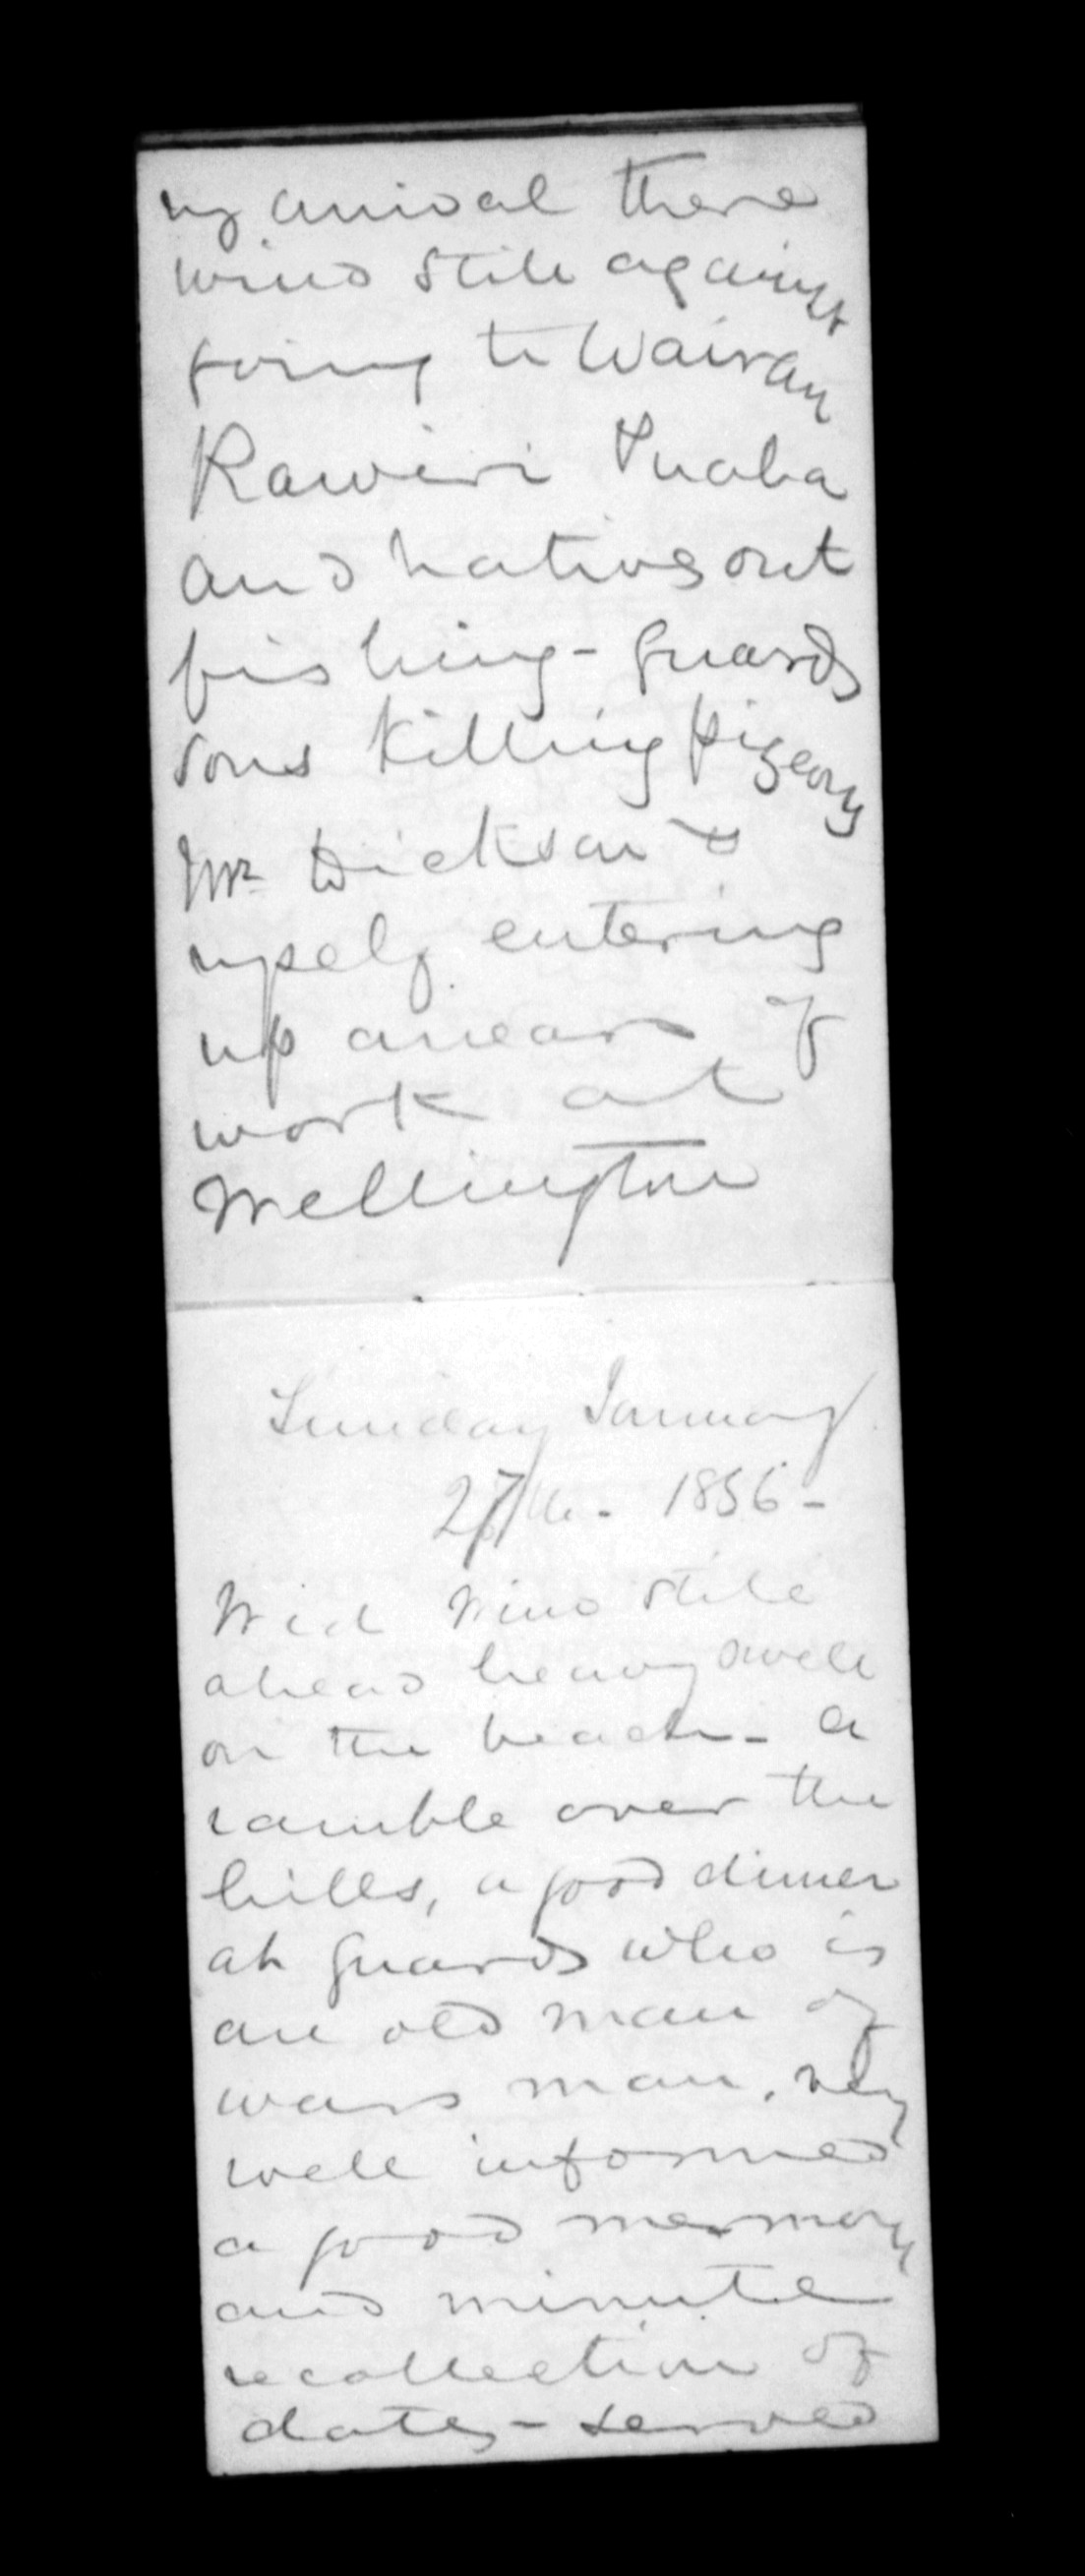 my arrival there
wind still against
going to Wairau
Rawiri Puaha
and natives out
fishing - Guards
sons killing pigeons
Mr. Dickson &
myself entering
up arrears of
work at
Wellington
Sunday January
27th. 1856 -
Wind still
ahead heavy swell
on the beach - a
ramble over the
hills, a good dinner
at Guards who is
an old man of
wars man, very
well informed
a good memory
and minute
recollection of
dates - served